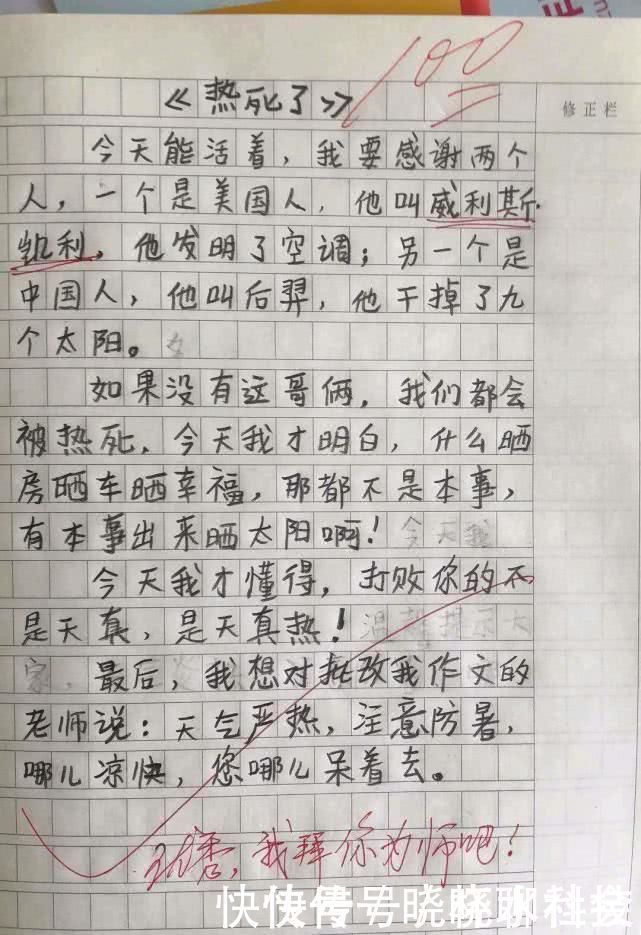 100
《热死了》
修正栏
今天能活着，我要感谢两个
人，一个是美国人，他叫威利斯·
凯利，他发明了空调；另一个是
中国人，他叫后羿，他干掉了九
个太阳。
如果没有这哥俩，我们都会
被热死，今天我才明白，什么晒
房晒车晒幸福，那都不是本事，
有本事出来晒太阳啊！今天我
今天我才懂得，打败你的不
是天真，是天真热！温馨提示大
家，最后，我想对批改我作文的
老师说：天气严热，注意防暑，
哪儿凉快，您哪儿呆着去。
优秀，我拜你为师吧！